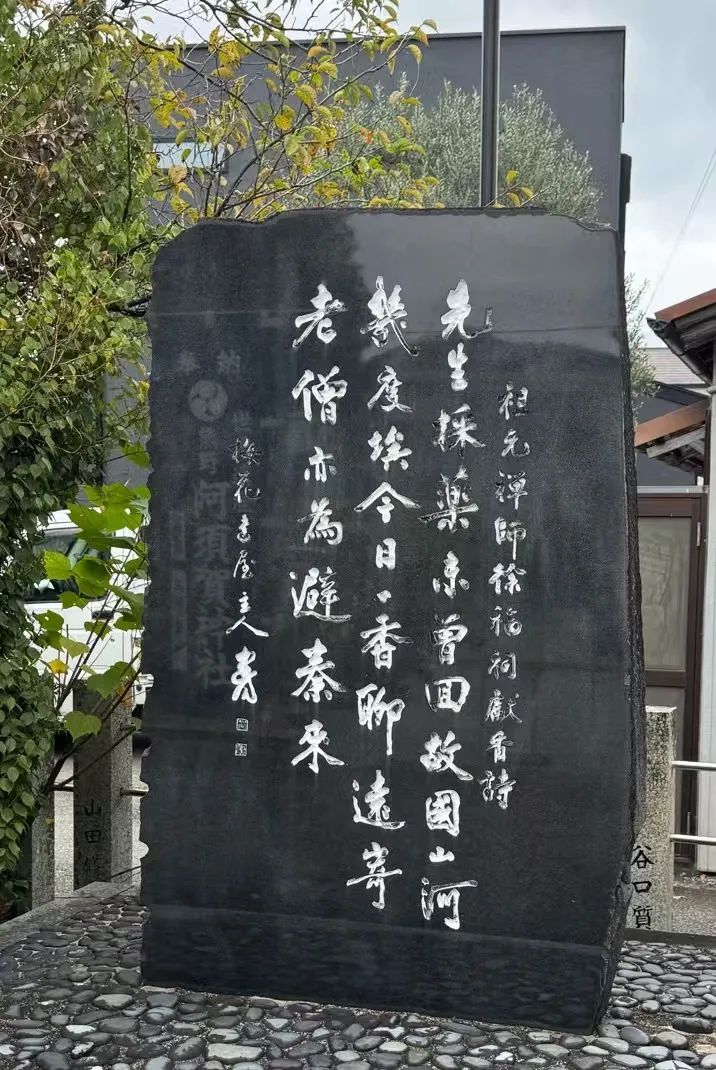 祖元禅師徐福祠獻香詩
先生採薬未曾回故國山河
幾度埃今日一香聊遠寄
老僧亦為避秦来
梅花書屋主人寿
奉納
阿須賀神社
山田
谷口質